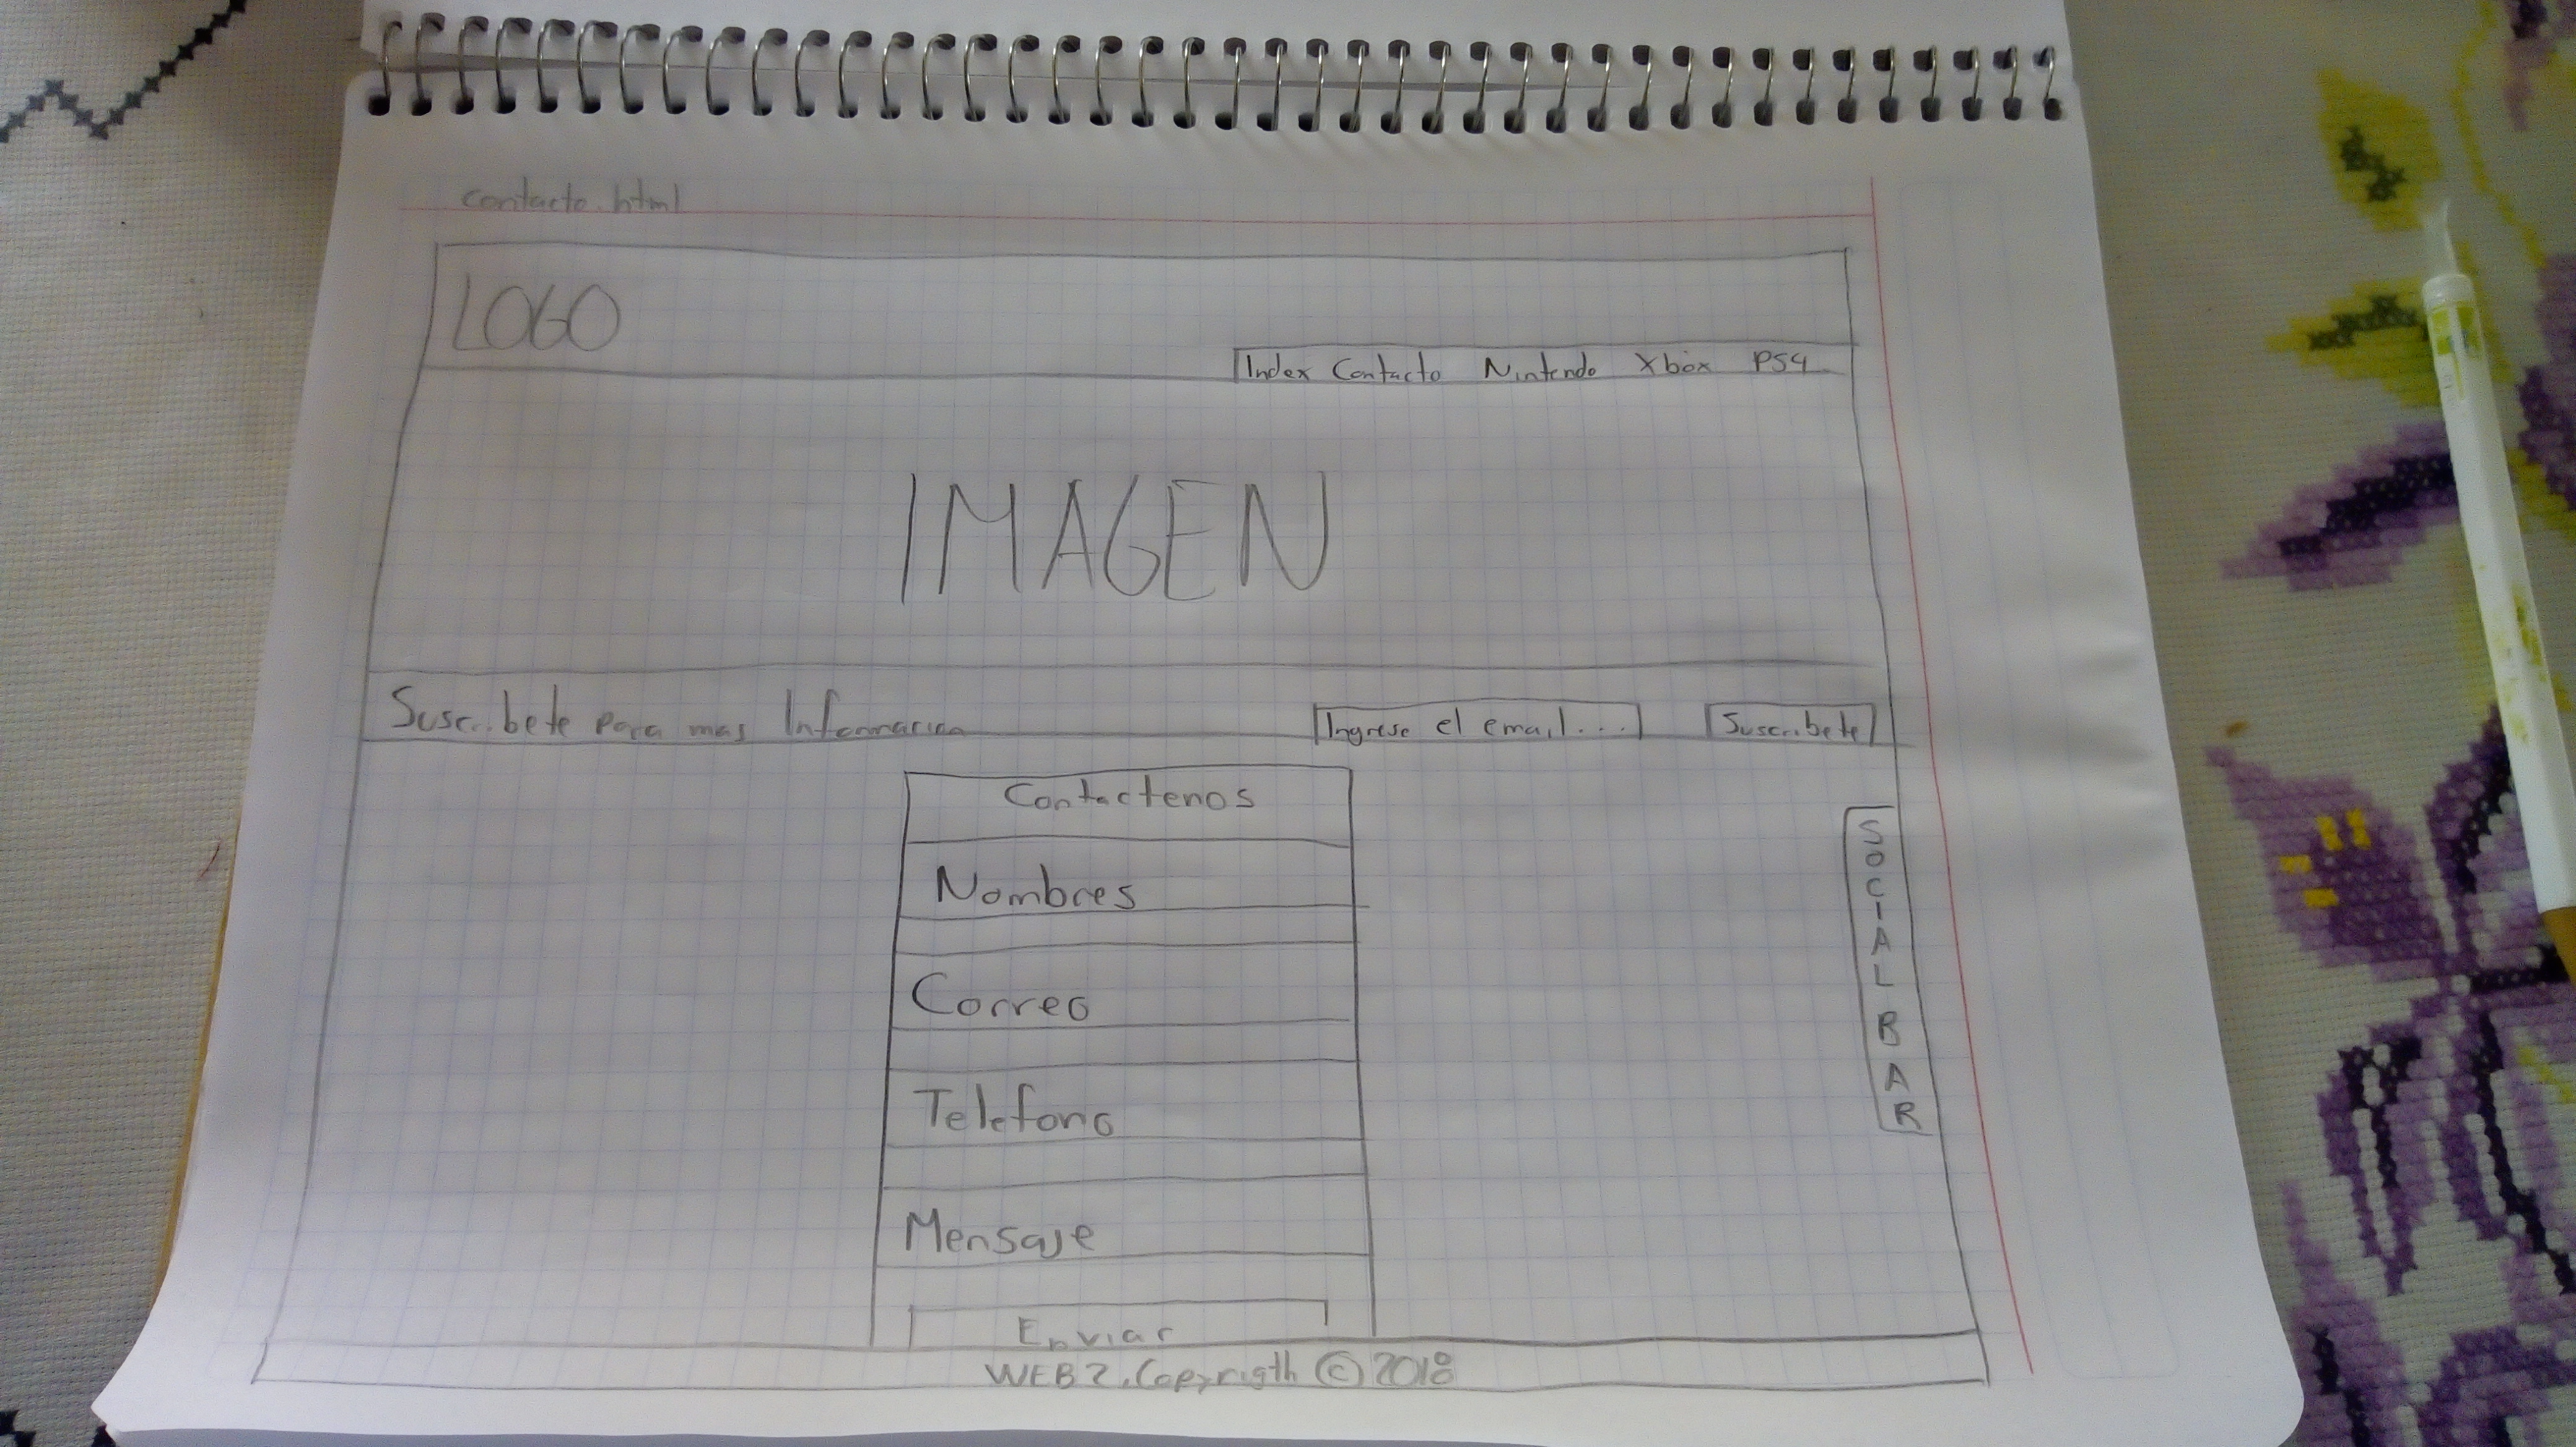 contacto.html
LOGO
Index Contacto Nintendo Xbox PS4
IMAGEN
Suscribete para mas Informacion
Ingrese el email...
Suscribete
Contactenos
Nombres
Correo
Telefono
Mensaje
Enviar
SOCIAL BAR
WEB 2. Copyrigth © 2018